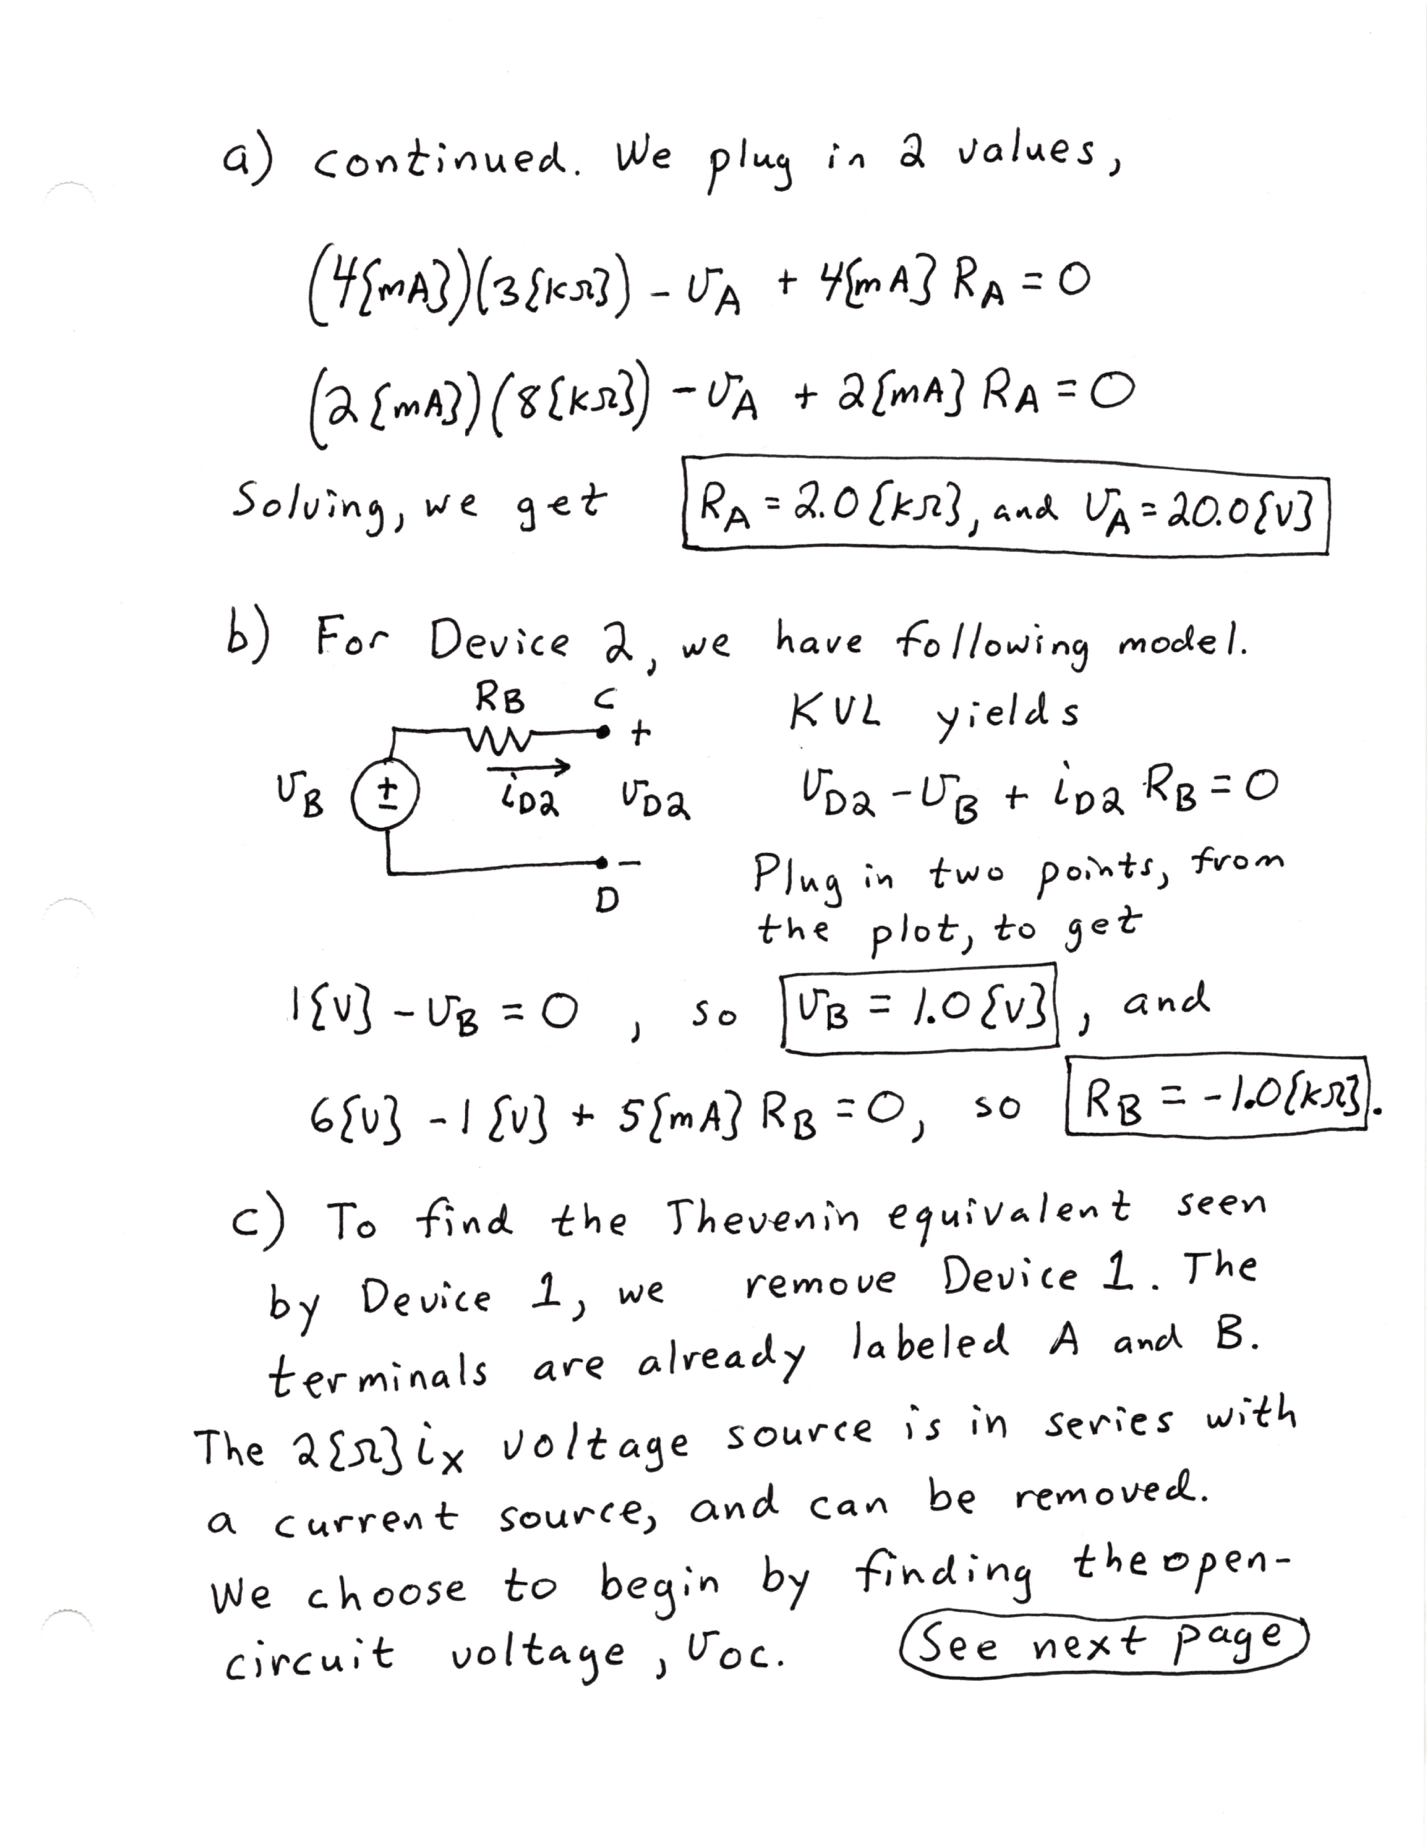 a) continued. We plug in 2 values,
(4{mA})(3{kΩ}) - vA + 4{mA} RA = 0
(2{mA})(8{kΩ}) - vA + 2{mA} RA = 0
Solving, we get RA = 2.0{kΩ}, and vA = 20.0{V}
b) For Device 2, we have following model.
RB C
KVL yields
+
vB ± iD2 vD2
vD2 - vB + iD2 RB = 0
-
D
Plug in two points, from
the plot, to get
1{V} - vB = 0, so vB = 1.0{V}, and
6{V} - 1{V} + 5{mA} RB = 0, so RB = -1.0{kΩ}.
c) To find the Thevenin equivalent seen
by Device 1, we remove Device 1. The
terminals are already labeled A and B.
The 2{Ω}ix voltage source is in series with
a current source, and can be removed.
We choose to begin by finding the open-
circuit voltage, vOC. See next page